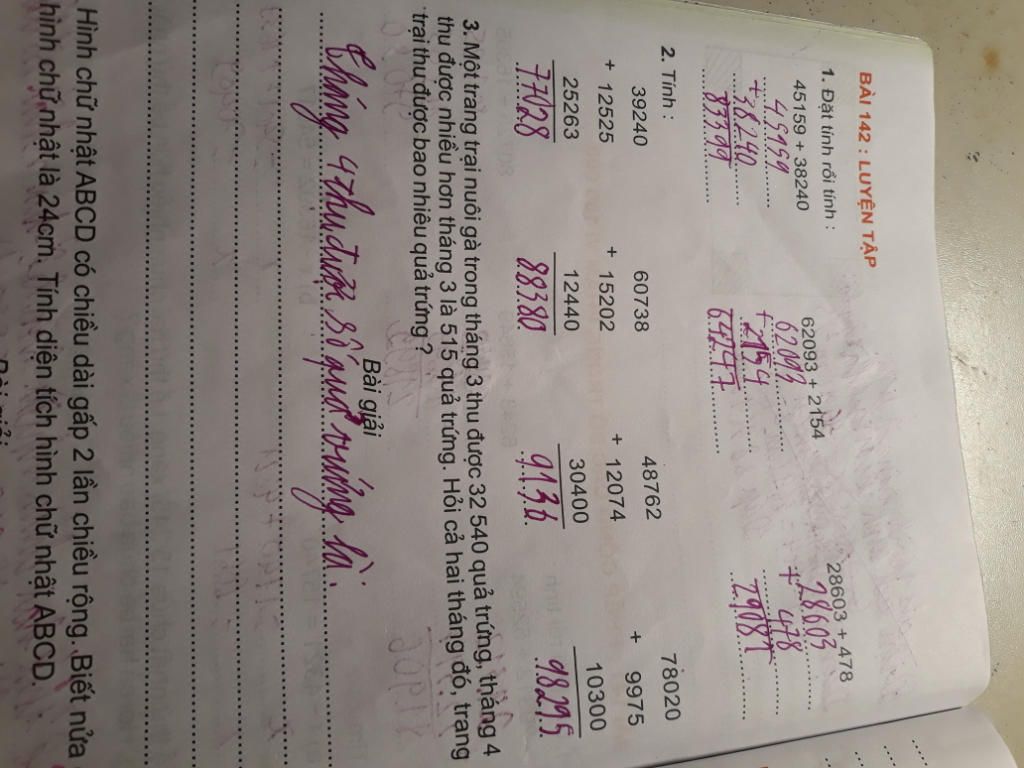 BÀI 142 : LUYỆN TẬP
1. Đặt tính rồi tính :
45159 + 38240 62093 + 2154 28603 + 478
45159 62093 28603
+ 38240 + 2154 + 478
83399 64247 29081
2. Tính :
39240 60738 48762 78020
+ 12525 + 15202 + 12074 + 9975
25263 12440 30400 10300
77028 88380 9136 98295
3. Một trang trại nuôi gà trong tháng 3 thu được 32 540 quả trứng, tháng 4
thu được nhiều hơn tháng 3 là 515 quả trứng. Hỏi cả hai tháng đó, trang
trại thu được bao nhiêu quả trứng ?
Bài giải
tháng 4 thu được số quả trứng là:
Hình chữ nhật ABCD có chiều dài gấp 2 lần chiều rộng. Biết nửa
hình chữ nhật là 24cm. Tính diện tích hình chữ nhật ABCD.
Bài giải